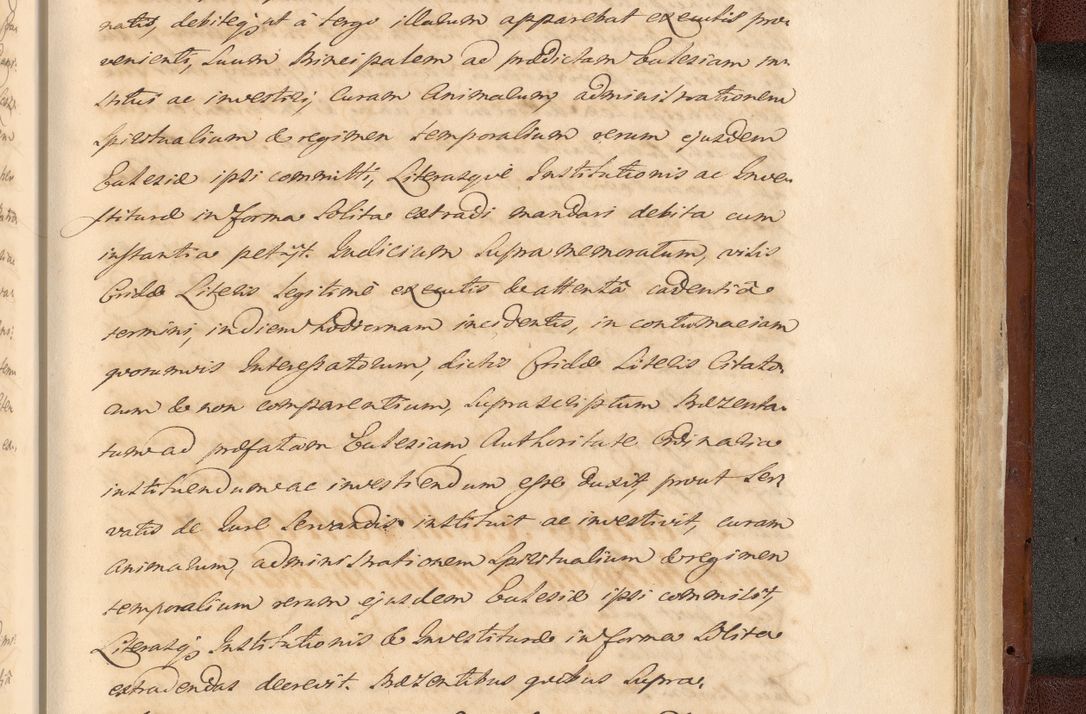 natis, debiteq; ut à tergo illarum apparebat executis pro-
venienti, Suum Principalem ad prædictam Ecclesiam in-
stitui ac investiri, Curam Animarum, administrationem
spiritualium & regimen temporalium rerum ejusdem
Ecclesiæ ipsi committi, Literasque Institutionis ac Inve-
stituræ in forma Solita extradi mandari debita cum
instantia petijt. Judicium Supra memoratum, visis
Cridæ Literis legitimè executis & attentâ cadentiâ
termini, in diem hodiernam incidentis, in contumaciam
quorumvis Interessatorum, dictis Cridæ Literis Citato-
rum & non comparentium, Suprascriptum Præzenta-
tum ad præfatam Ecclesiam Authoritate Ordinaria
instituendum ac investiendum esse duxit, prout Ser-
vatis de Jure Servandis instituit ac investivit, curam
animarum, administrationem Spiritualium & regimen
temporalium rerum ejusdem Ecclesiæ ipsi commisit,
Literasq; Institutionis & Investituræ in forma Solita
extradendas decrevit. Præzentibus quibus Supra.